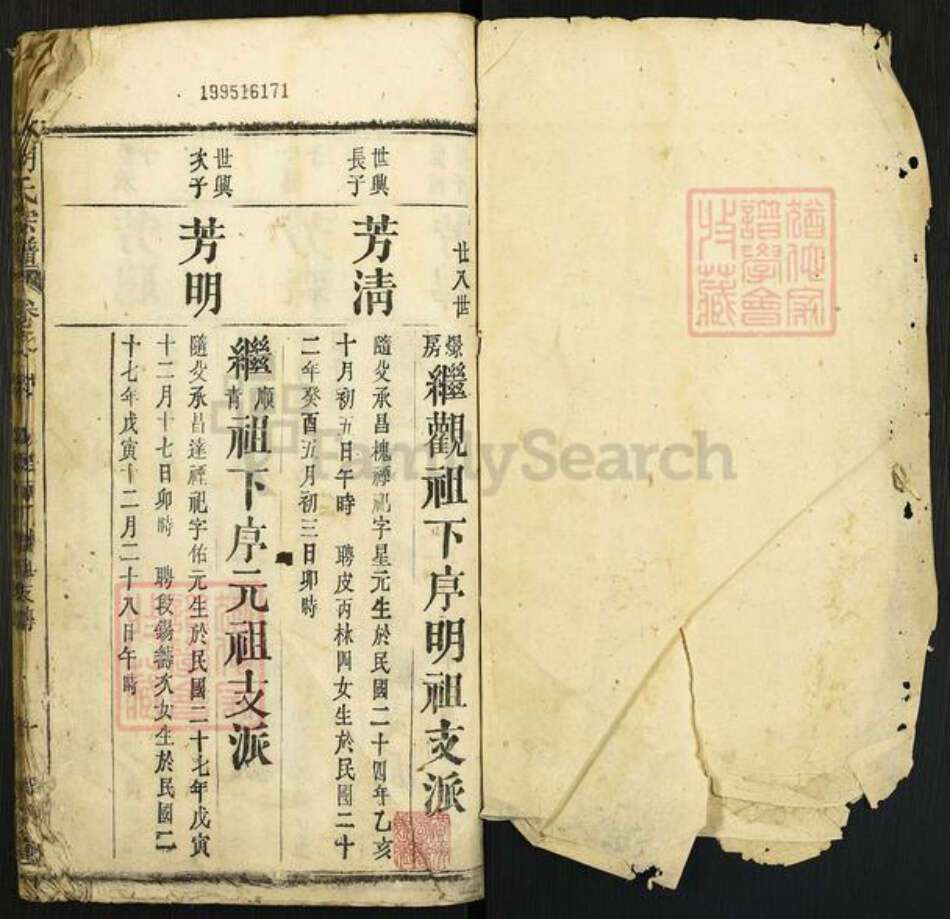 199516171
廿八世
世興
長子
芳清
房
繼觀祖下序明祖支派
隨父承昌槐禋祀字星元生於民國二十四年乙亥
十月初五日午時 聘皮丙林四女生於民國二十
二年癸酉五月初三日卯時
世興
次子
芳明
繼祖下序元祖支派
順
青
隨父承昌達禋祀字佑元生於民國二十七年戊寅
十二月十七日卯時 聘段錫疇次女生於民國二
十七年戊寅十二月二十八日午時
氏宗譜
譜學會
收藏
FamilySearch